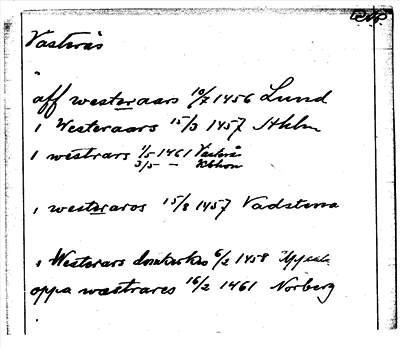 Västerås
aff westeraars 10/7 1456 Lund
i Westeraars 15/3 1457 Sthlm
i westrars 1/5 1461 Västerås
3/5 —
i westeraros 15/8 1457 Vadstena
i Westerars domkirkio 6/2 1458 Uppsala
oppa wæstrares 16/2 1461 Norberg